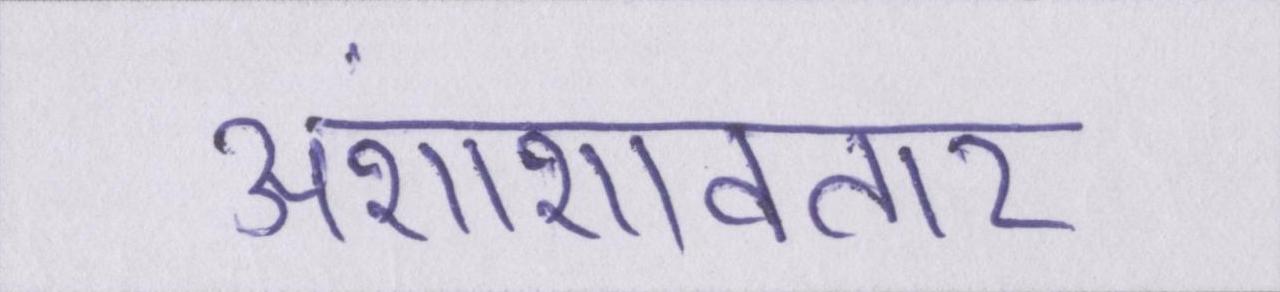 अंशाशावतार